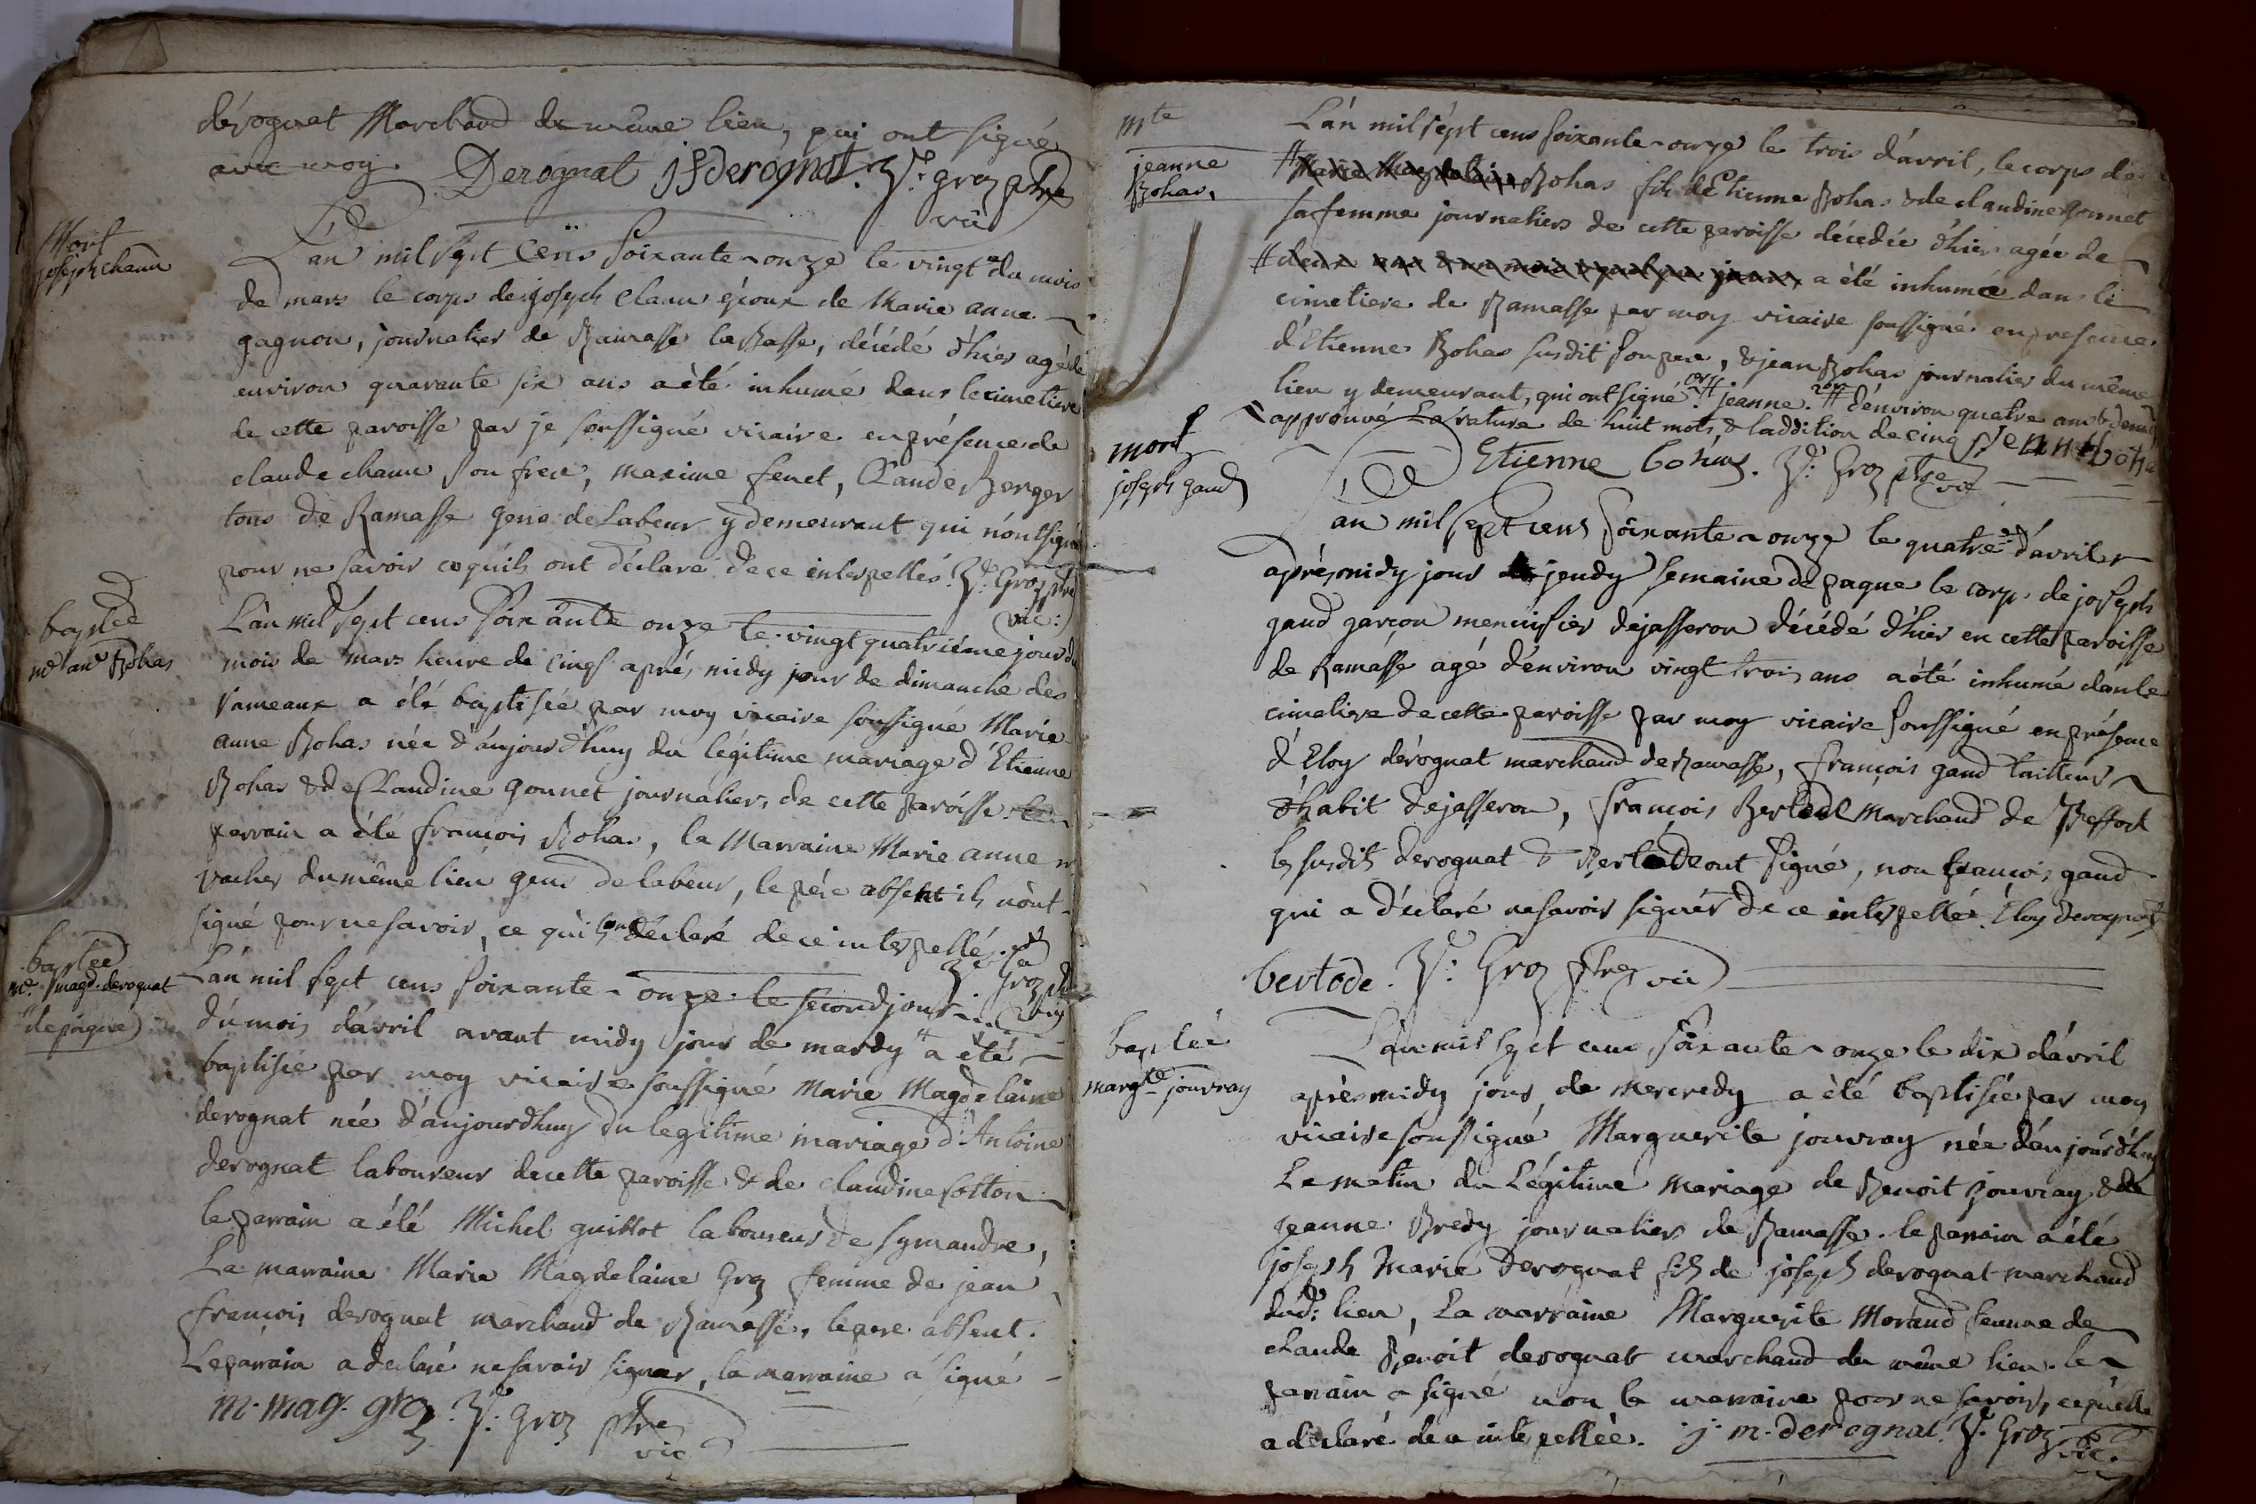 dérognat Marchand du même lieu, qui ont signé
avec moy. Derognat jf derognat. Z.e groz ptre
vic
Mort
joseph chanu
L'an mil sept cens soixante-onze le vingt du mois
de mars le corps de joseph chanu époux de Marie anne
gagnon, journalier de Ramasse la Basse, décédé d'hier agé de
environ quarante six ans a été inhumé dans le cimetiere
de cette paroisse par je soussigné vicaire en présence de
claude chanu son frere, maxime fenet, Claude Berger
tous de Ramasse gens de Labeur y demeurant qui n'ont signé
pour ne savoir ce qu'ils ont déclaré de ce interpellés. Z.e Groz ptre
vic:
baptée
me anne Bohas
L'an mil sept cens soixante onze le vingt quatriéme jour du
mois de mars heure de cinq aprés midy jour de dimanche des
rameaux a été baptisée par moy vicaire soussigné Marie
anne Bohas née d'aujourd'huy du légitime mariage d'Etienne
Bohas & de Claudine gonnet journaliers de cette paroisse. le
parrain a été françois Bohas, la Marraine Marie anne
vacher du même lieu gens de labeur, le pére absent ils n'ont
signé pour ne savoir, ce qu'ils ont déclaré de ce interpellé.
Z.e Groz ptre
vic
baptée
me magd. derognat
L'an mil sept cens soixante-onze le second jour
du mois d'avril avant midy jour de mardy # a été
baptisée par moy vicaire soussigné Marie Magdelaine
derognat née d'aujourdhuy du legitime mariage d'Antoine
derognat laboureur de cette paroisse & de claudine cotton
le parrain a été Michel guillot laboureur de symandre,
La marraine Marie Magdelaine Groz femme de jean
françois derognat marchand de Ramasse, le pere absent.
Le parrain a declaré ne savoir signer, la marraine a signé
m. mag. groz. Z.e Groz ptre
vic
mte
jeanne
Bohas
L'an mil sépt cens soixante-onze le trois d'avril, le corps de
# Marie Magdelaine Bohas fille d'Etienne Bohas & de claudine gonnet
sa femme journaliers de cette paroisse décédée d'hier agée de
# deux ans a été inhumée dans le
cimetiere de Ramasse par moy vicaire soussigné en presence
d'Etienne Bohas susdit son pere, & jean Bohas journalier du même
lieu y demeurant, qui ont signé. # jeanne. # d'environ quatre ans & demi
approuvé La rature de huit mots & l'addition de cinq jean boha
Etienne bohas. Z.e Groz ptre vic
mort
joseph gaud
L'an mil sept cens soixante-onze le quatre d'avril
aprés midy jour de jeudy semaine de paque le corps de joseph
gaud garçon menuisier de jasseron décédé d'hier en cette paroisse
de Ramasse agé d'environ vingt trois ans a été inhumé dans le
cimetiere de cette paroisse par moy vicaire soussigné en présence
d'Eloy dérognat marchand de Ramasse, françois gaud tailleur
d'habit de jasseron, françois Bertode Marchand de Reffort
les susdits derognat & Bertode ont signé, non françois gaud
qui a déclaré ne savoir signer de ce interpellé. Eloy derognat
bertode. Z.e Groz ptre vic
baptée
margte jouvray
L'an mil sept cens soixante-onze le dix d'avril
aprés midy jour de mercredy a été baptisée par moy
vicaire soussigné Marguerite jouvray née d'aujourd'huy
Le matin du Légitime mariage de Benoit jouvray & de
jeanne Bredy journaliers de Ramasse. le parrain a été
joseph Marie derognat fils de joseph derognat marchand
dud: lieu, La marraine Marguerite Morand femme de
claude Benoit derognat marchand du même lieu. le
parrain a signé non la marraine pour ne savoir, ce qu'elle
a declaré de ce interpellée. j. m. derognat. Z.e Groz
vic.